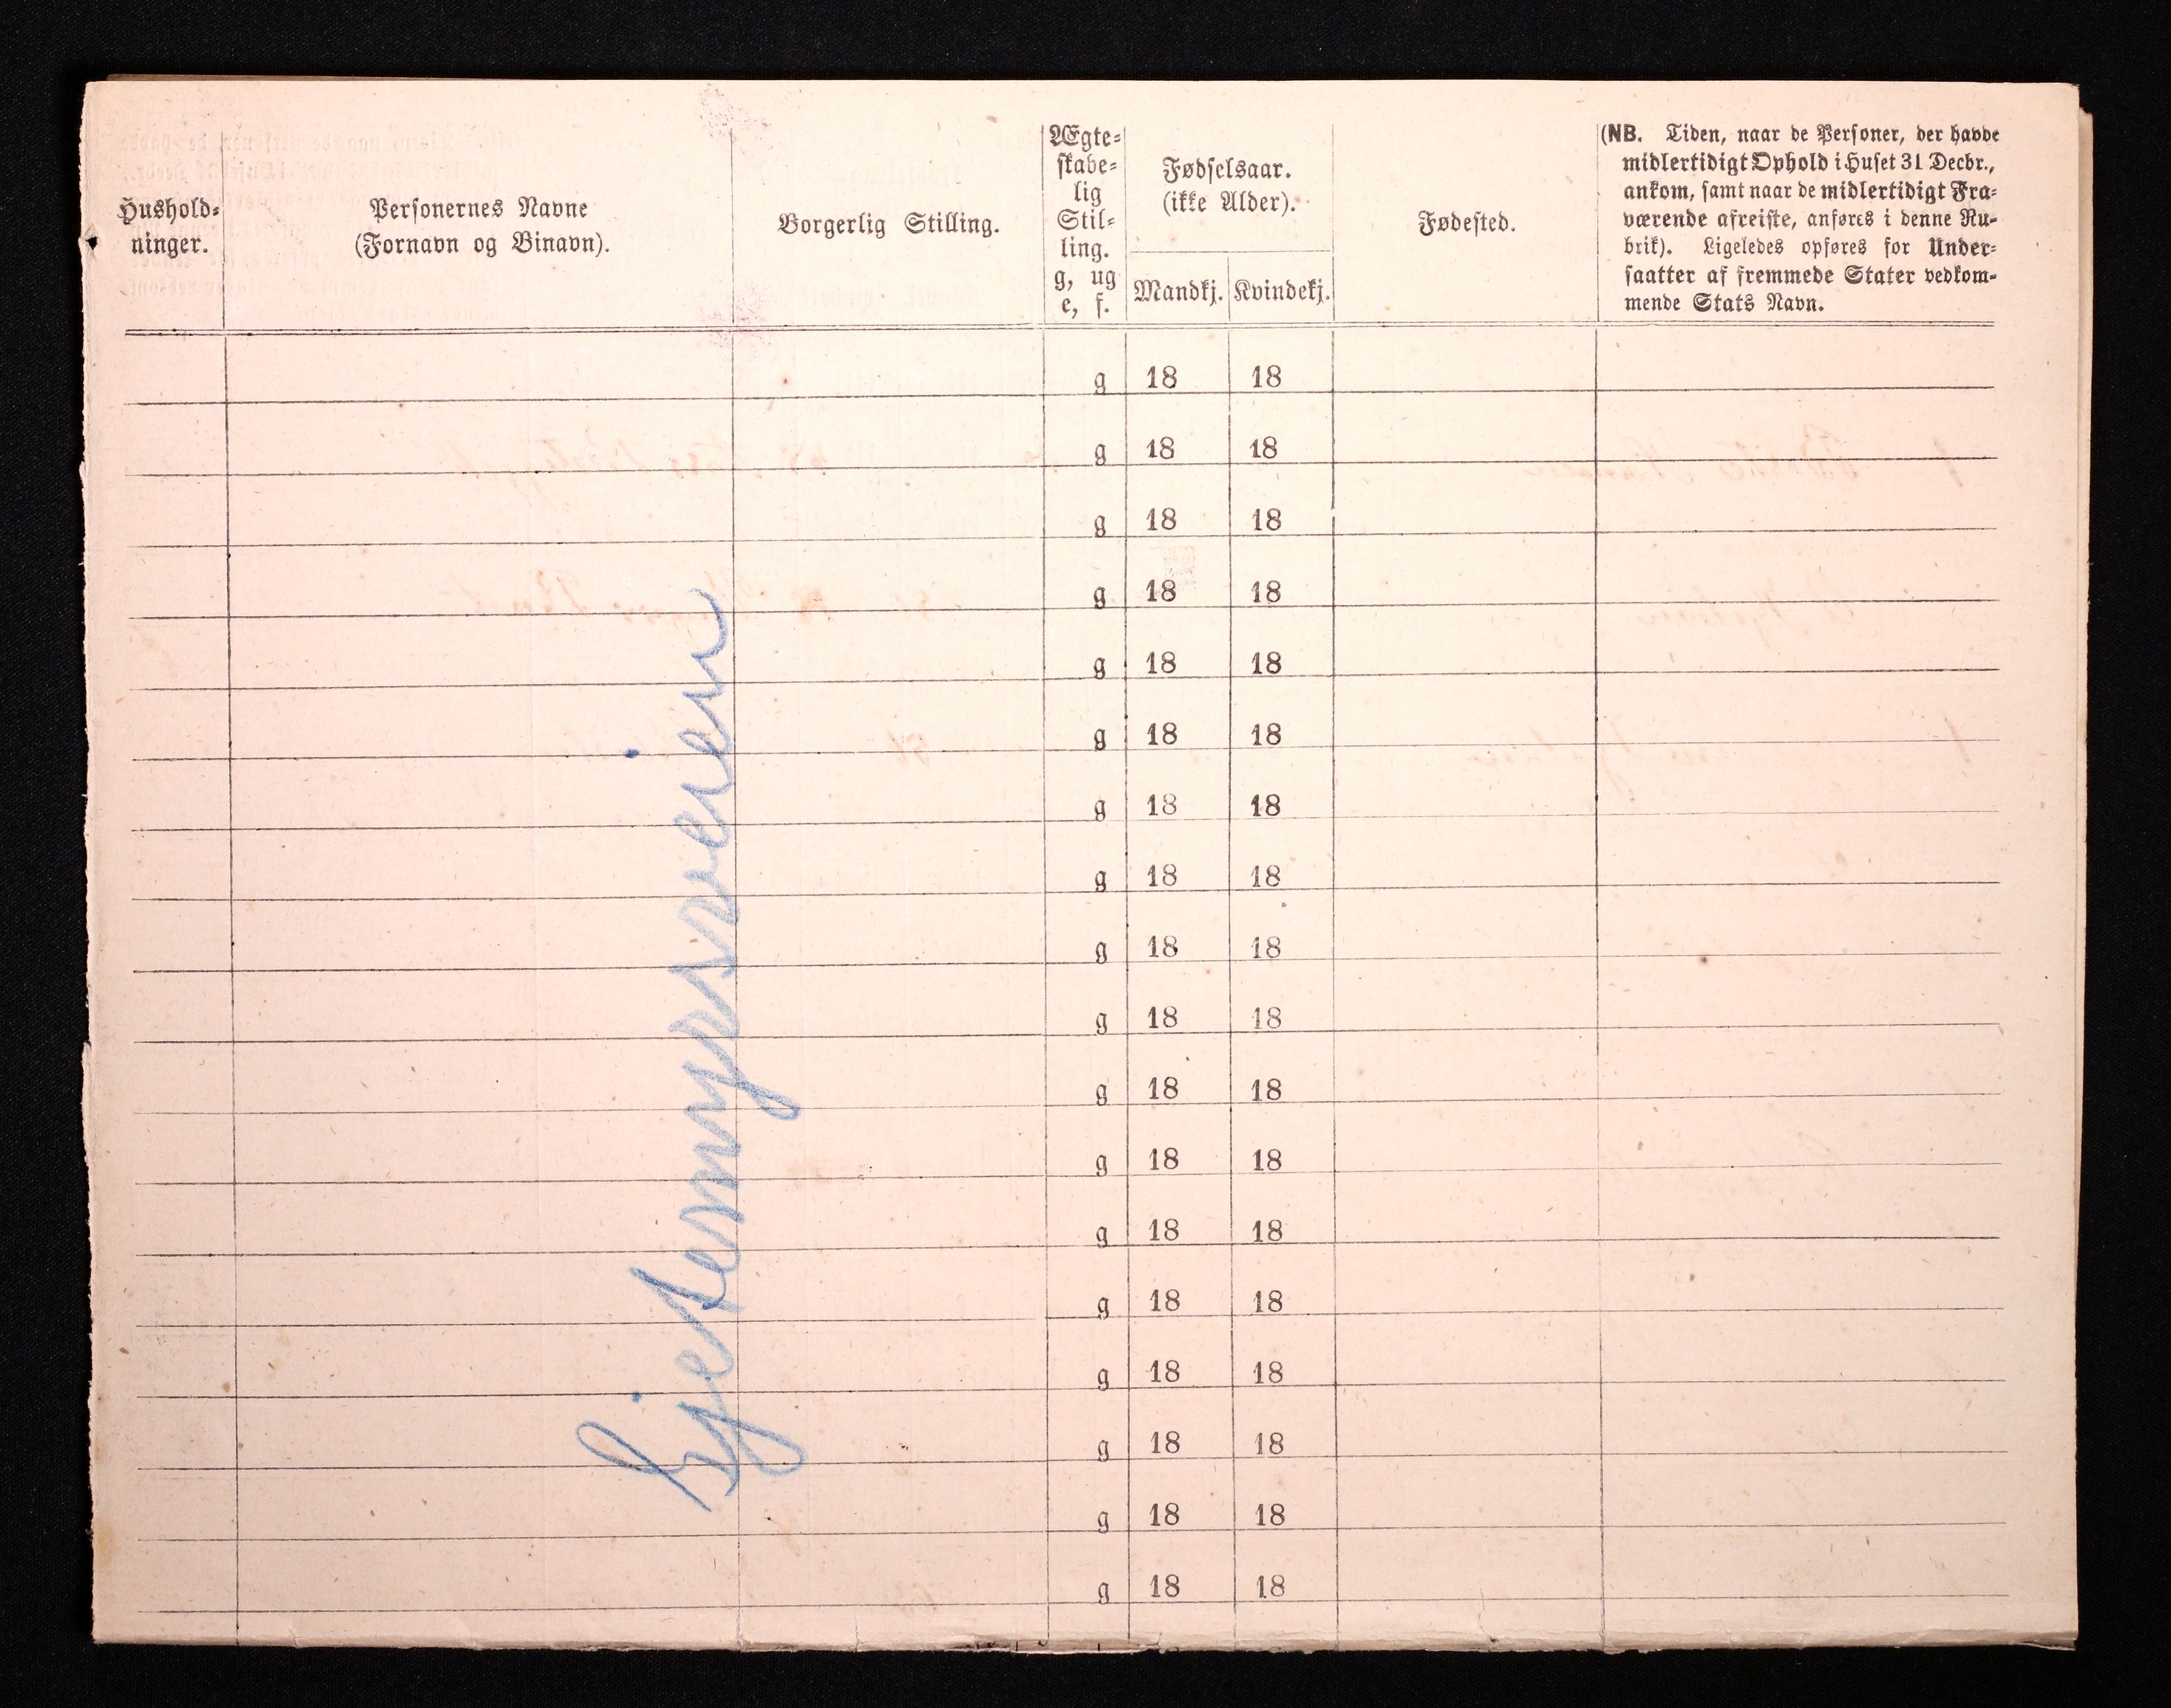 Hushold-
ninger.
Personernes Navne
(Fornavn og Binavn).
Borgerlig Stilling.
Ægte-
skabe-
lig
Stil-
ling.
g, ug
e, f.
Fødselsaar.
(ikke Alder).
Mandkj. Kvindekj.
Fødested.
(NB. Tiden, naar de Personer, der havde
midlertidigt Ophold i Huset 31 Decbr.,
ankom, samt naar de midlertidigt Fra-
værende afreiste, anføres i denne Ru-
brik). Ligeledes opføres for Under-
saatter af fremmede Stater vedkom-
mende Stats Navn.
g 18 18
g 18 18
g 18 18
g 18 18
g 18 18
g 18 18
g 18 18
g 18 18
g 18 18
g 18 18
g 18 18
g 18 18
g 18 18
g 18 18
g 18 18
g 18 18
g 18 18
g 18 18
Gjetemyrsveien